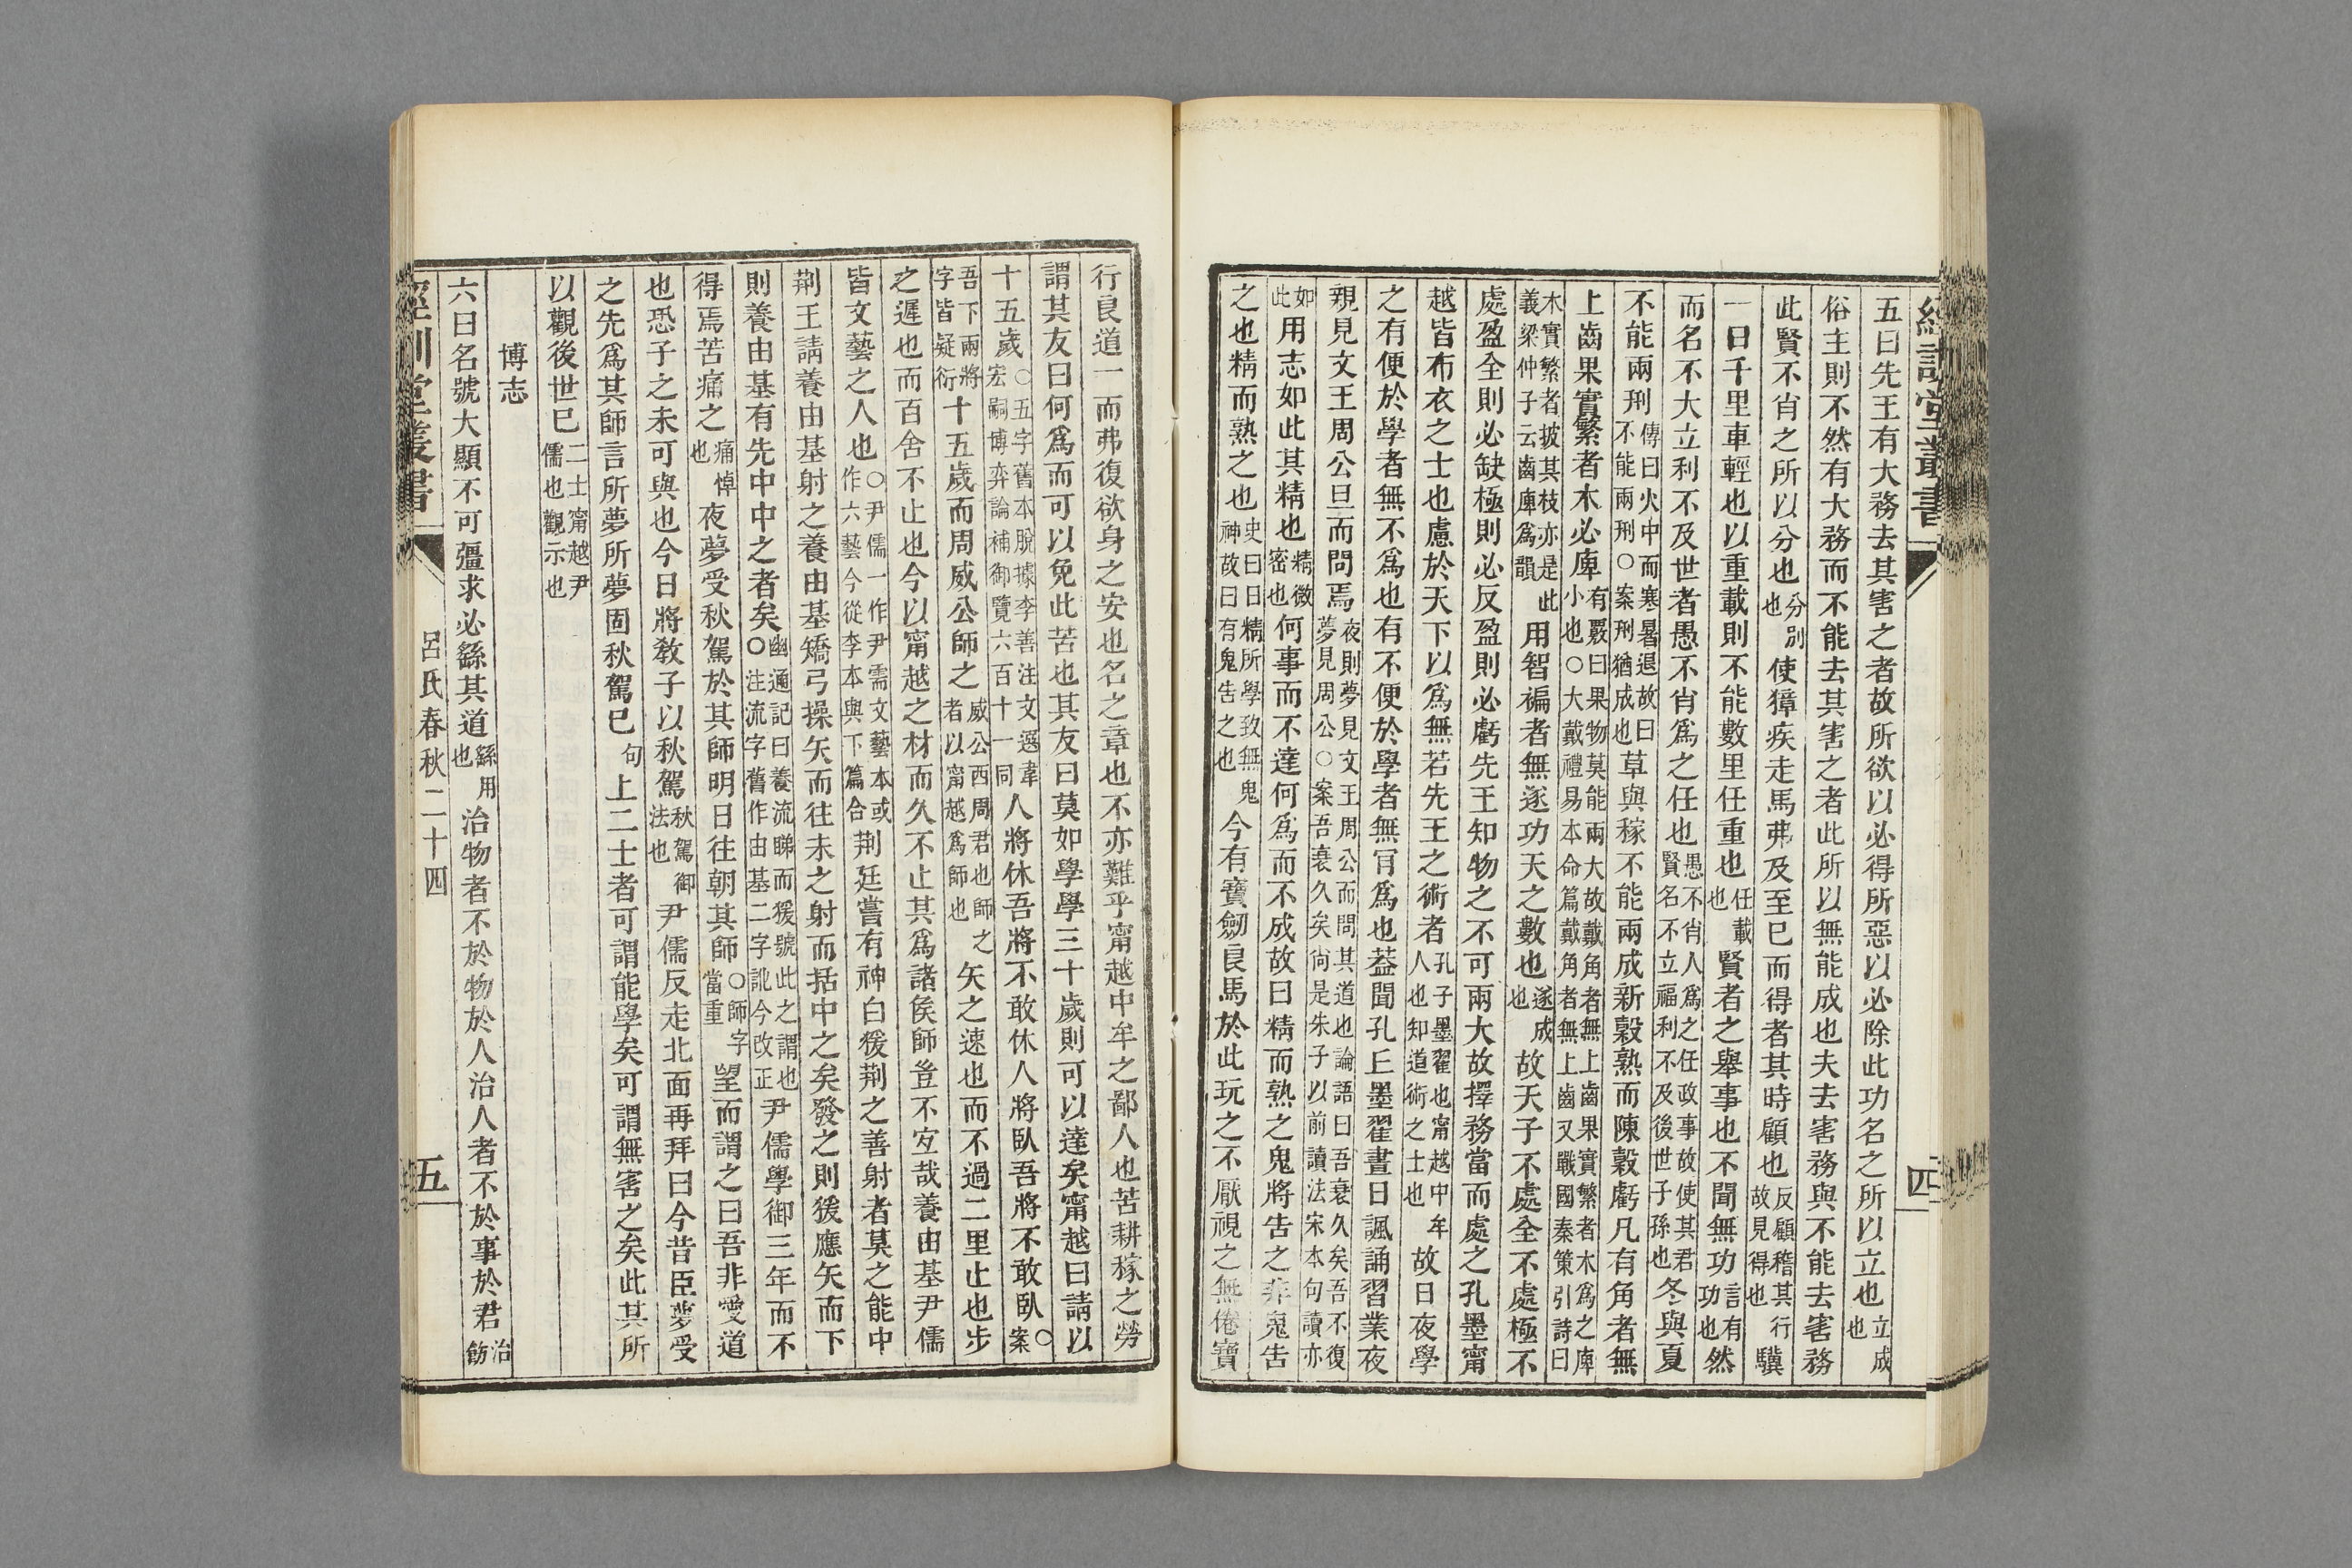 經訓堂叢書
四
五曰先王有大務去其害之者故所欲以必得所惡以必除此功名之所以立也立成也
俗主則不然有大務而不能去其害之者此所以無能成也夫去害務與不能去害務
此賢不肖之所以分也分別也使獐疾走馬弗及至已而得者其時顧也反顧稽其行故見得也驥
一日千里車輕也以重載則不能數里任重也任載也賢者之舉事也不聞無功言有功也然
而名不大立利不及世者愚不肖爲之任也愚不肖人爲之任政事故使其君賢名不立福利不及後世子孫也冬與夏
不能兩刑傳曰火中而寒暑退故曰不能兩刑○案刑猶成也草與稼不能兩成新穀熟而陳穀虧凡有角者無
上齒果實繁者木必庳有覈曰果物莫能兩大故戴角者無上齒果實繁者木爲之庳小也○大戴禮易本命篇戴角者無上齒又戰國秦策引詩曰
木實繁者披其枝亦是此義梁仲子云齒庳爲韻用智褊者無遂功天之數也遂成也故天子不處全不處極不
處盈全則必缺極則必反盈則必虧先王知物之不可兩大故擇務當而處之孔墨甯
越皆布衣之士也慮於天下以爲無若先王之術者孔子墨翟也甯越中牟人也知道術之士也故日夜學
之有便於學者無不爲也有不便於學者無肎爲也蓋聞孔丘墨翟晝日諷誦習業夜
親見文王周公旦而問焉夜則夢見文王周公而問其道也論語曰吾衰久矣吾不復夢見周公○案吾衰久矣尙是朱子以前讀法宋本句讀亦
如此用志如此其精也精微密也何事而不達何爲而不成故曰精而熟之鬼將告之非鬼告
之也精而熟之也史曰日精所學致無鬼神故曰有鬼告之也今有寶劒良馬於此玩之不厭視之無倦寶
行良道一而弗復欲身之安也名之章也不亦難乎甯越中牟之鄙人也苦耕稼之勞
謂其友曰何爲而可以免此苦也其友曰莫如學學三十歲則可以達矣甯越曰請以
十五歲○五字舊本脫據李善注文選韋宏嗣博弈論補御覽六百十一同人將休吾將不敢休人將臥吾將不敢臥○案
吾下兩將字皆疑衍十五歲而周威公師之威公西周君也師之者以甯越爲師也矢之速也而不過二里止也步
之遲也而百舍不止也今以甯越之材而久不止其爲諸侯師豈不宐哉養由基尹儒
皆文藝之人也○尹儒一作尹需文藝本或作六藝今從李本與下篇合荆廷嘗有神白猨荆之善射者莫之能中
荆王請養由基射之養由基矯弓操矢而往未之射而括中之矣發之則猨應矢而下
則養由基有先中中之者矣○幽通記曰養流睇而猨號此之謂也注流字舊作由基二字訛今改正尹儒學御三年而不
得焉苦痛之痛悼也夜夢受秋駕於其師明日往朝其師○師字當重望而謂之曰吾非愛道
也恐子之未可與也今日將敎子以秋駕秋駕御法也尹儒反走北面再拜曰今昔臣夢受
之先爲其師言所夢所夢固秋駕已句上二士者可謂能學矣可謂無害之矣此其所
以觀後世已二士甯越尹儒也觀示也
博志
六曰名號大顯不可彊求必繇其道繇用也治物者不於物於人治人者不於事於君治飭
經訓堂叢書
呂氏春秋二十四
五